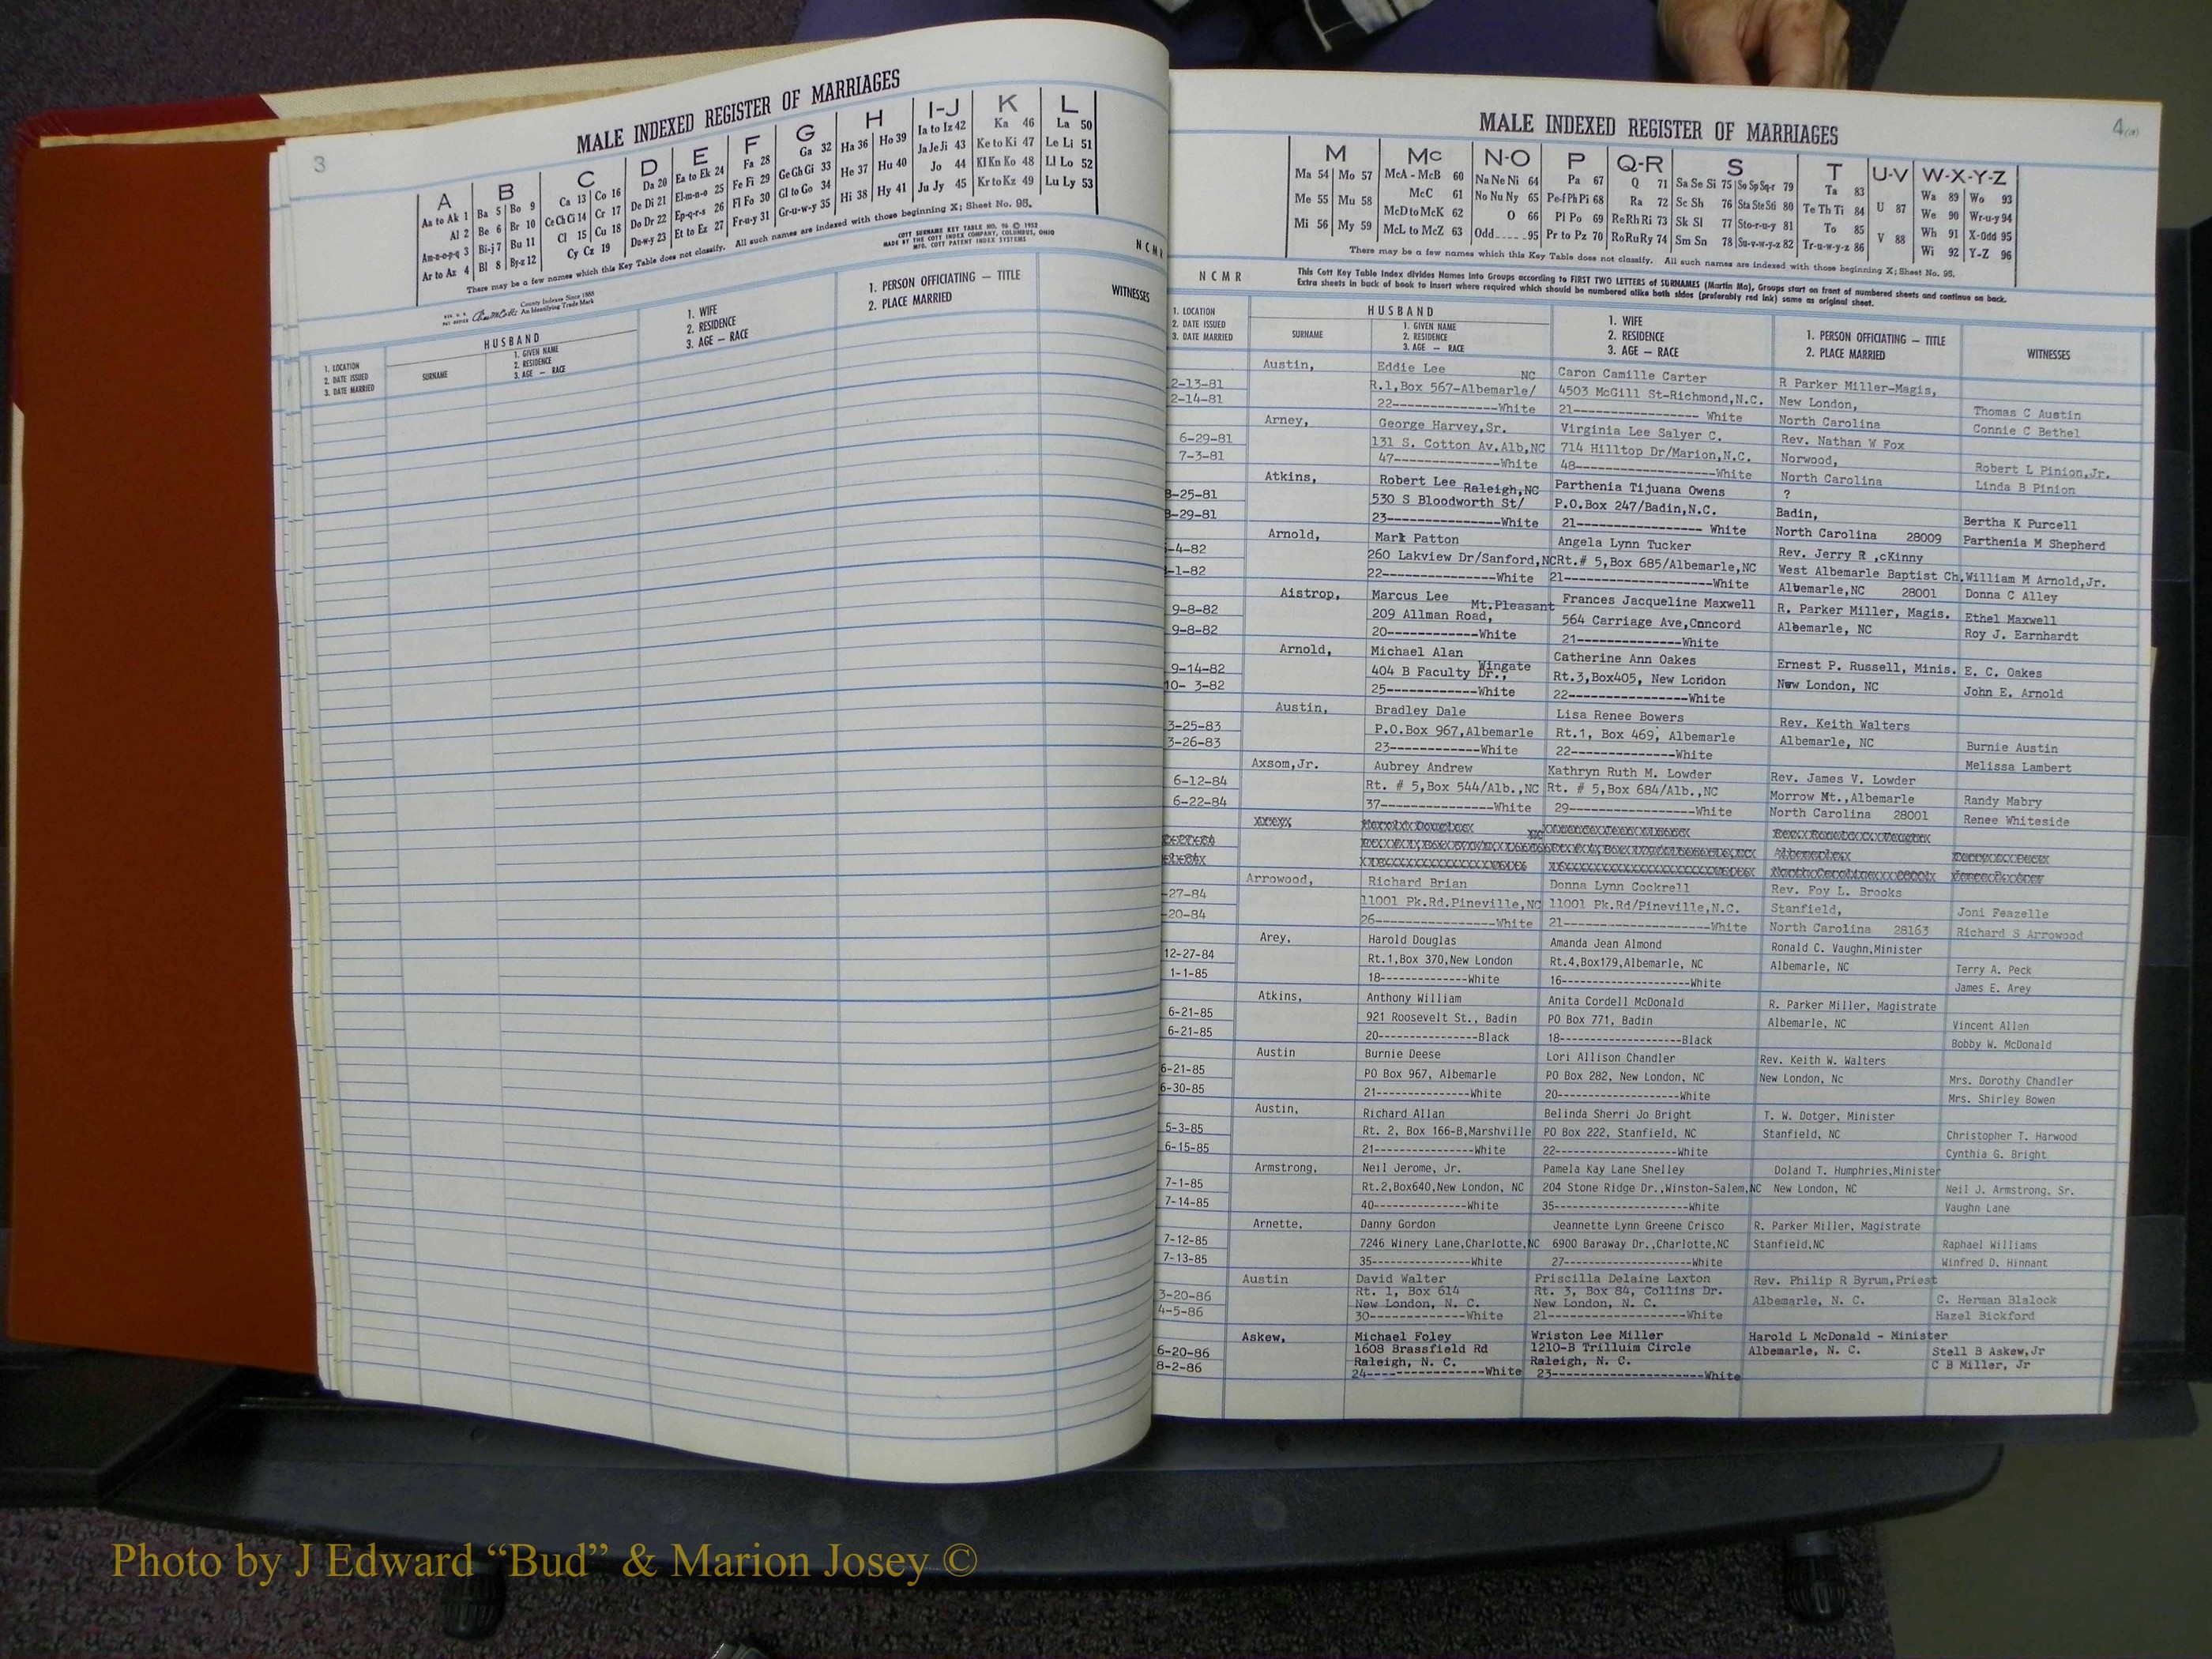 3
MALE INDEXED REGISTER OF MARRIAGES
A B C D E F G H I-J K L
Aa to Ak 1 Ba 5 Bo 9 Ca 13 Co 16 Da 20 Ea to Ek 24 Fa 28 Ga 32 Ha 36 Ho 39 Ia to Iz 42 Ka 46 La 50
Al 2 Be 6 Br 10 Ce Ch Ci 14 Cr 17 De Di 21 El-m-n-o 25 Fe Fi 29 Ge Gh Gi 33 He 37 Hu 40 Ja Je Ji 43 Ke to Ki 47 Le Li 51
Am-n-o-p-q 3 Bi-j 7 Bu 11 Cl 15 Cu 18 Do Dr 22 Ep-q-r-s 26 Fl Fo 30 Gl to Go 34 Hi 38 Hy 41 Jo 44 Kl Kn Ko 48 Ll Lo 52
Ar to Az 4 Bl 8 By-z 12 Cy Cz 19 Du-w-y 23 Et to Ez 27 Fr-u-y 31 Gr-u-w-y 35 Ju Jy 45 Kr to Kz 49 Lu Ly 53
There may be a few names which this Key Table does not classify. All such names are indexed with those beginning X; Sheet No. 95.
County Indexes Since 1888
An Identifying Trade Mark
COTT SURNAME KEY TABLE NO. 96 © 1952
MADE BY THE COTT INDEX COMPANY, COLUMBUS, OHIO
MFG. COTT PATENT INDEX SYSTEMS
N C M R
1. LOCATION
2. DATE ISSUED
3. DATE MARRIED
HUSBAND
SURNAME
1. GIVEN NAME
2. RESIDENCE
3. AGE — RACE
1. WIFE
2. RESIDENCE
3. AGE — RACE
1. PERSON OFFICIATING — TITLE
2. PLACE MARRIED
WITNESSES
4
MALE INDEXED REGISTER OF MARRIAGES
M Mc N-O P Q-R S T U-V W-X-Y-Z
Ma 54 Mo 57 McA - McB 60 Na Ne Ni 64 Pa 67 Q 71 Sa Se Si 75 So Sp Sq-r 79 Ta 83 Wa 89 Wo 93
Me 55 Mu 58 McC 61 No Nu Ny 65 Pe-f Ph Pi 68 Ra 72 Sc Sh 76 Sta Ste Sti 80 Te Th Ti 84 U 87 We 90 Wr-u-y 94
Mi 56 My 59 McD to McK 62 O 66 Pl Po 69 Re Rh Ri 73 Sk Sl 77 Sto-r-u-y 81 To 85 Wh 91 X-Odd 95
McL to McZ 63 Odd 95 Pr to Pz 70 Ro Ru Ry 74 Sm Sn 78 Su-v-w-y-z 82 Tr-u-w-y-z 86 V 88 Wi 92 Y-Z 96
There may be a few names which this Key Table does not classify. All such names are indexed with those beginning X; Sheet No. 95.
N C M R
This Cott Key Table Index divides Names into Groups according to FIRST TWO LETTERS of SURNAMES (Martin Ma), Groups start on front of numbered sheets and continue on back.
Extra sheets in back of book to insert where required which should be numbered alike both sides (preferably red ink) same as original sheet.
1. LOCATION
2. DATE ISSUED
3. DATE MARRIED
HUSBAND
SURNAME
1. GIVEN NAME
2. RESIDENCE
3. AGE — RACE
1. WIFE
2. RESIDENCE
3. AGE — RACE
1. PERSON OFFICIATING — TITLE
2. PLACE MARRIED
WITNESSES
Austin, Eddie Lee NC Caron Camille Carter R Parker Miller-Magis,
2-13-81 R.1,Box 567-Albemarle/ 4503 McGill St-Richmond,N.C. New London, Thomas C Austin
2-14-81 22--------------White 21---------------- White North Carolina Connie C Bethel
Arney, George Harvey,Sr. Virginia Lee Salyer C. Rev. Nathan W Fox
6-29-81 131 S. Cotton Av.Alb,NC 714 Hilltop Dr/Marion,N.C. Norwood, Robert L Pinion,Jr.
7-3-81 47--------------White 48------------------White North Carolina Linda B Pinion
Atkins, Robert Lee Raleigh,NC Parthenia Tijuana Owens ?
8-25-81 530 S Bloodworth St/ P.O.Box 247/Badin,N.C. Badin, Bertha K Purcell
8-29-81 23--------------White 21---------------- White North Carolina 28009 Parthenia M Shepherd
Arnold, Mark Patton Angela Lynn Tucker Rev. Jerry R ,cKinny
-4-82 260 Lakview Dr/Sanford,NC Rt.# 5,Box 685/Albemarle,NC West Albemarle Baptist Ch. William M Arnold,Jr.
-1-82 22--------------White 21-------------------White Albemarle,NC 28001 Donna C Alley
Aistrop, Marcus Lee Mt.Pleasant Frances Jacqueline Maxwell R. Parker Miller, Magis. Ethel Maxwell
9-8-82 209 Allman Road, 564 Carriage Ave,Concord Albemarle, NC Roy J. Earnhardt
9-8-82 20------------White 21--------------White
Arnold, Michael Alan Catherine Ann Oakes Ernest P. Russell, Minis. E. C. Oakes
9-14-82 404 B Faculty Dr., Wingate Rt.3,Box405, New London New London, NC John E. Arnold
10- 3-82 25------------White 22----------------White
Austin, Bradley Dale Lisa Renee Bowers Rev. Keith Walters
3-25-83 P.O.Box 967,Albemarle Rt.1, Box 469, Albemarle Albemarle, NC Burnie Austin
3-26-83 23------------White 22--------------White Melissa Lambert
Axsom,Jr. Aubrey Andrew Kathryn Ruth M. Lowder Rev. James V. Lowder
6-12-84 Rt. # 5,Box 544/Alb.,NC Rt. # 5,Box 684/Alb.,NC Morrow Mt.,Albemarle Randy Mabry
6-22-84 37--------------White 29-----------------White North Carolina 28001 Renee Whiteside
Arrowood, Richard Brian Donna Lynn Cockrell Rev. Foy L. Brooks
-27-84 11001 Pk.Rd.Pineville,NC 11001 Pk.Rd/Pineville,N.C. Stanfield, Joni Feazelle
-20-84 26--------------White 21------------------White North Carolina 28163 Richard S Arrowood
Arey, Harold Douglas Amanda Jean Almond Ronald C. Vaughn,Minister
12-27-84 Rt.1,Box 370,New London Rt.4,Box179,Albemarle, NC Albemarle, NC Terry A. Peck
1-1-85 18--------------White 16---------------------White James E. Arey
Atkins, Anthony William Anita Cordell McDonald R. Parker Miller, Magistrate
6-21-85 921 Roosevelt St., Badin PO Box 771, Badin Albemarle, NC Vincent Allen
6-21-85 20----------------Black 18--------------------Black Bobby W. McDonald
Austin Burnie Deese Lori Allison Chandler Rev. Keith W. Walters
6-21-85 PO Box 967, Albemarle PO Box 282, New London, NC New London, Nc Mrs. Dorothy Chandler
6-30-85 21---------------White 20--------------------White Mrs. Shirley Bowen
Austin, Richard Allan Belinda Sherri Jo Bright T. W. Dotger, Minister
5-3-85 Rt. 2, Box 166-B,Marshville PO Box 222, Stanfield, NC Stanfield, NC Christopher T. Harwood
6-15-85 21----------------White 22--------------------White Cynthia G. Bright
Armstrong, Neil Jerome, Jr. Pamela Kay Lane Shelley Doland T. Humphries,Minister
7-1-85 Rt.2,Box640,New London, NC 204 Stone Ridge Dr.,Winston-Salem,NC New London, NC Neil J. Armstrong, Sr.
7-14-85 40---------------White 35----------------------White Vaughn Lane
Arnette, Danny Gordon Jeannette Lynn Greene Crisco R. Parker Miller, Magistrate
7-12-85 7246 Winery Lane,Charlotte,NC 6900 Baraway Dr.,Charlotte,NC Stanfield,NC Raphael Williams
7-13-85 35----------------White 27---------------------White Winfred D. Hinnant
Austin David Walter Priscilla Delaine Laxton Rev. Philip R Byrum,Priest
3-20-86 Rt. 1, Box 614 Rt. 3, Box 84, Collins Dr. Albemarle, N. C. C. Herman Blalock
4-5-86 New London, N. C. New London, N. C. Hazel Bickford
30-------------White 21------------------White
Askew, Michael Foley Wriston Lee Miller Harold L McDonald - Minister
6-20-86 1608 Brassfield Rd 1210-B Trilluim Circle Albemarle, N. C. Stell B Askew,Jr
8-2-86 Raleigh, N. C. Raleigh, N. C. C B Miller, Jr
24----------------White 23--------------------White
Photo by J Edward “Bud” & Marion Josey ©